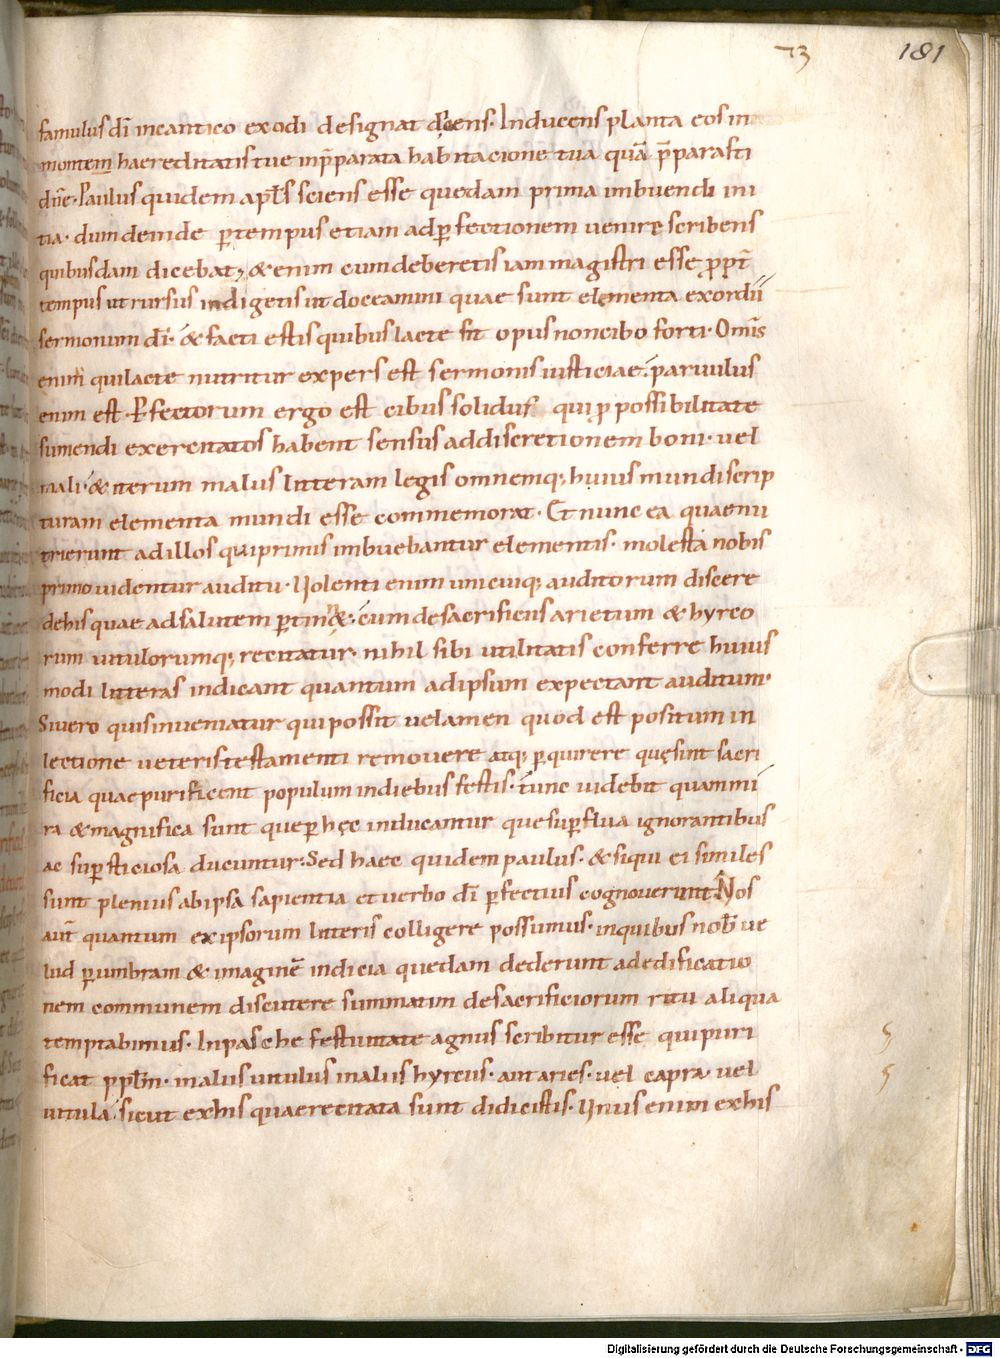 73 181
famulus dī in cantico exodi designat dicens. Inducens planta eos in
montem haereditatis tue inp̄parata habitacione tua quā p̄parasti
dn̄e. Paulus quidem apl̄s sciens esse quedam prima imbuendi ini
tia. dum deinde ꝑtempus etiam adꝑfectionem venire scribens
quibusdam dicebat; & enim cum deberetis iam magistri esse ꝓpt̄
tempus ut rursus indigetis ut doceamini quae sunt elementa exordii
sermonum dī. & facti estis quibus lacte sit opus non cibo forti. Omīs
enim qui lacte nutritur expers est sermonis iusticiae. parvulus
enim est. Ꝑfectorum ergo est cibus solidus qui ꝓ possibilitate
sumendi exercitatos habent sensus ad discretionem boni. vel
mali. & iterum malus litteram legis omnemq; huius mundi scrip
turam elementa mundi esse commemorat. Et nunc ea quae nu
trierunt ad illos qui primis imbuebantur elementis. molesta nobis
primo videntur auditu. Nolenti enim unicuiq; auditorum discere
de his quae ad salutem ꝑtin&. cum de sacrificiis arietum & hyrco
rum vitulorumq; recitatur. nihil sibi utilitatis conferre huius
modi litteras indicant quantum ad ipsum expectant auditum.
Si vero quis inveniatur qui possit velamen quod est positum in
lectione veteris testamenti removere atq; ꝑquirere quę sint sacri
ficia quae purificent populum in diebus festis. tunc videbit quam mi
ra & magnifica sunt que ꝑ hęc inducantur que suꝑflua ignorantibus
ac suꝑsticiosa ducuntur. Sed haec quidem paulus. & si qui ei similes
sunt plenius ab ipsa sapientia et verbo dī ꝑfectius cognoverunt Nos
aut̄ quantum ex ipsorum litteris colligere possumus. in quibus nob̄ ve
lud ꝑ umbram & imaginē indicia quedam dederunt ad edificatio
nem communem discutere summatim de sacrificiorum ritu aliqua
temptabimus. In pasche festivitate agnus scribitur esse qui puri
ficat ppl̄m. in alius vitulus in aliis hyrcus. aut aries. vel capra. vel
vitula. sicut ex his quae recitata sunt didicistis. Unus enim ex his
Digitalisierung gefördert durch die Deutsche Forschungsgemeinschaft - DFG